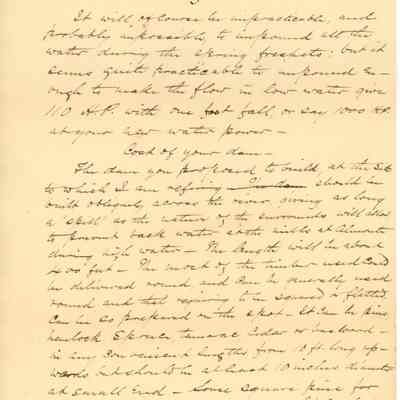 It will, of course be impracticable, and
probably impossible, to impound all the
water during the spring freshets: but it
seems quite practicable to impound en-
ough to make the flow in low water give
110 H.P. with one foot fall, or say 1000 H.P.
at your new water power -
Cost of your dam -
The dam you proposed to build, at the site
to which I am refering should be
built obliquely across the river, giving as long
a "spill" as the nature of the surrounds will allow
to prevent back water at the mills at Almonte
during high water - The length will be about
400 feet - The most of the timber used could
be delivered round and can be generally used
round and that requiring to be squared or flatted,
can be so prepared on the spot - It can be pine
hemlock Spruce tamarac Cedar or basswood -
in any convenient lengths from 10 ft. long up-
wards but should be at least 10 inches diameter
at small end - Some square pine for